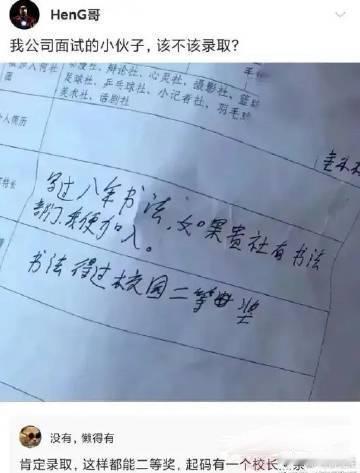 HenG哥
我公司面试的小伙子,该不该录取?
社、辩论社、心灵社、摄影社、篮
足球社、乒乓球社、小记者社、羽毛
美术社、话剧社
人简历
特长
写过八年书法,如果贵社有书法
部门,我便加入。
书法得过校园二等奖
没有,懒得有
肯定录取,这样都能二等奖,起码有一个校长